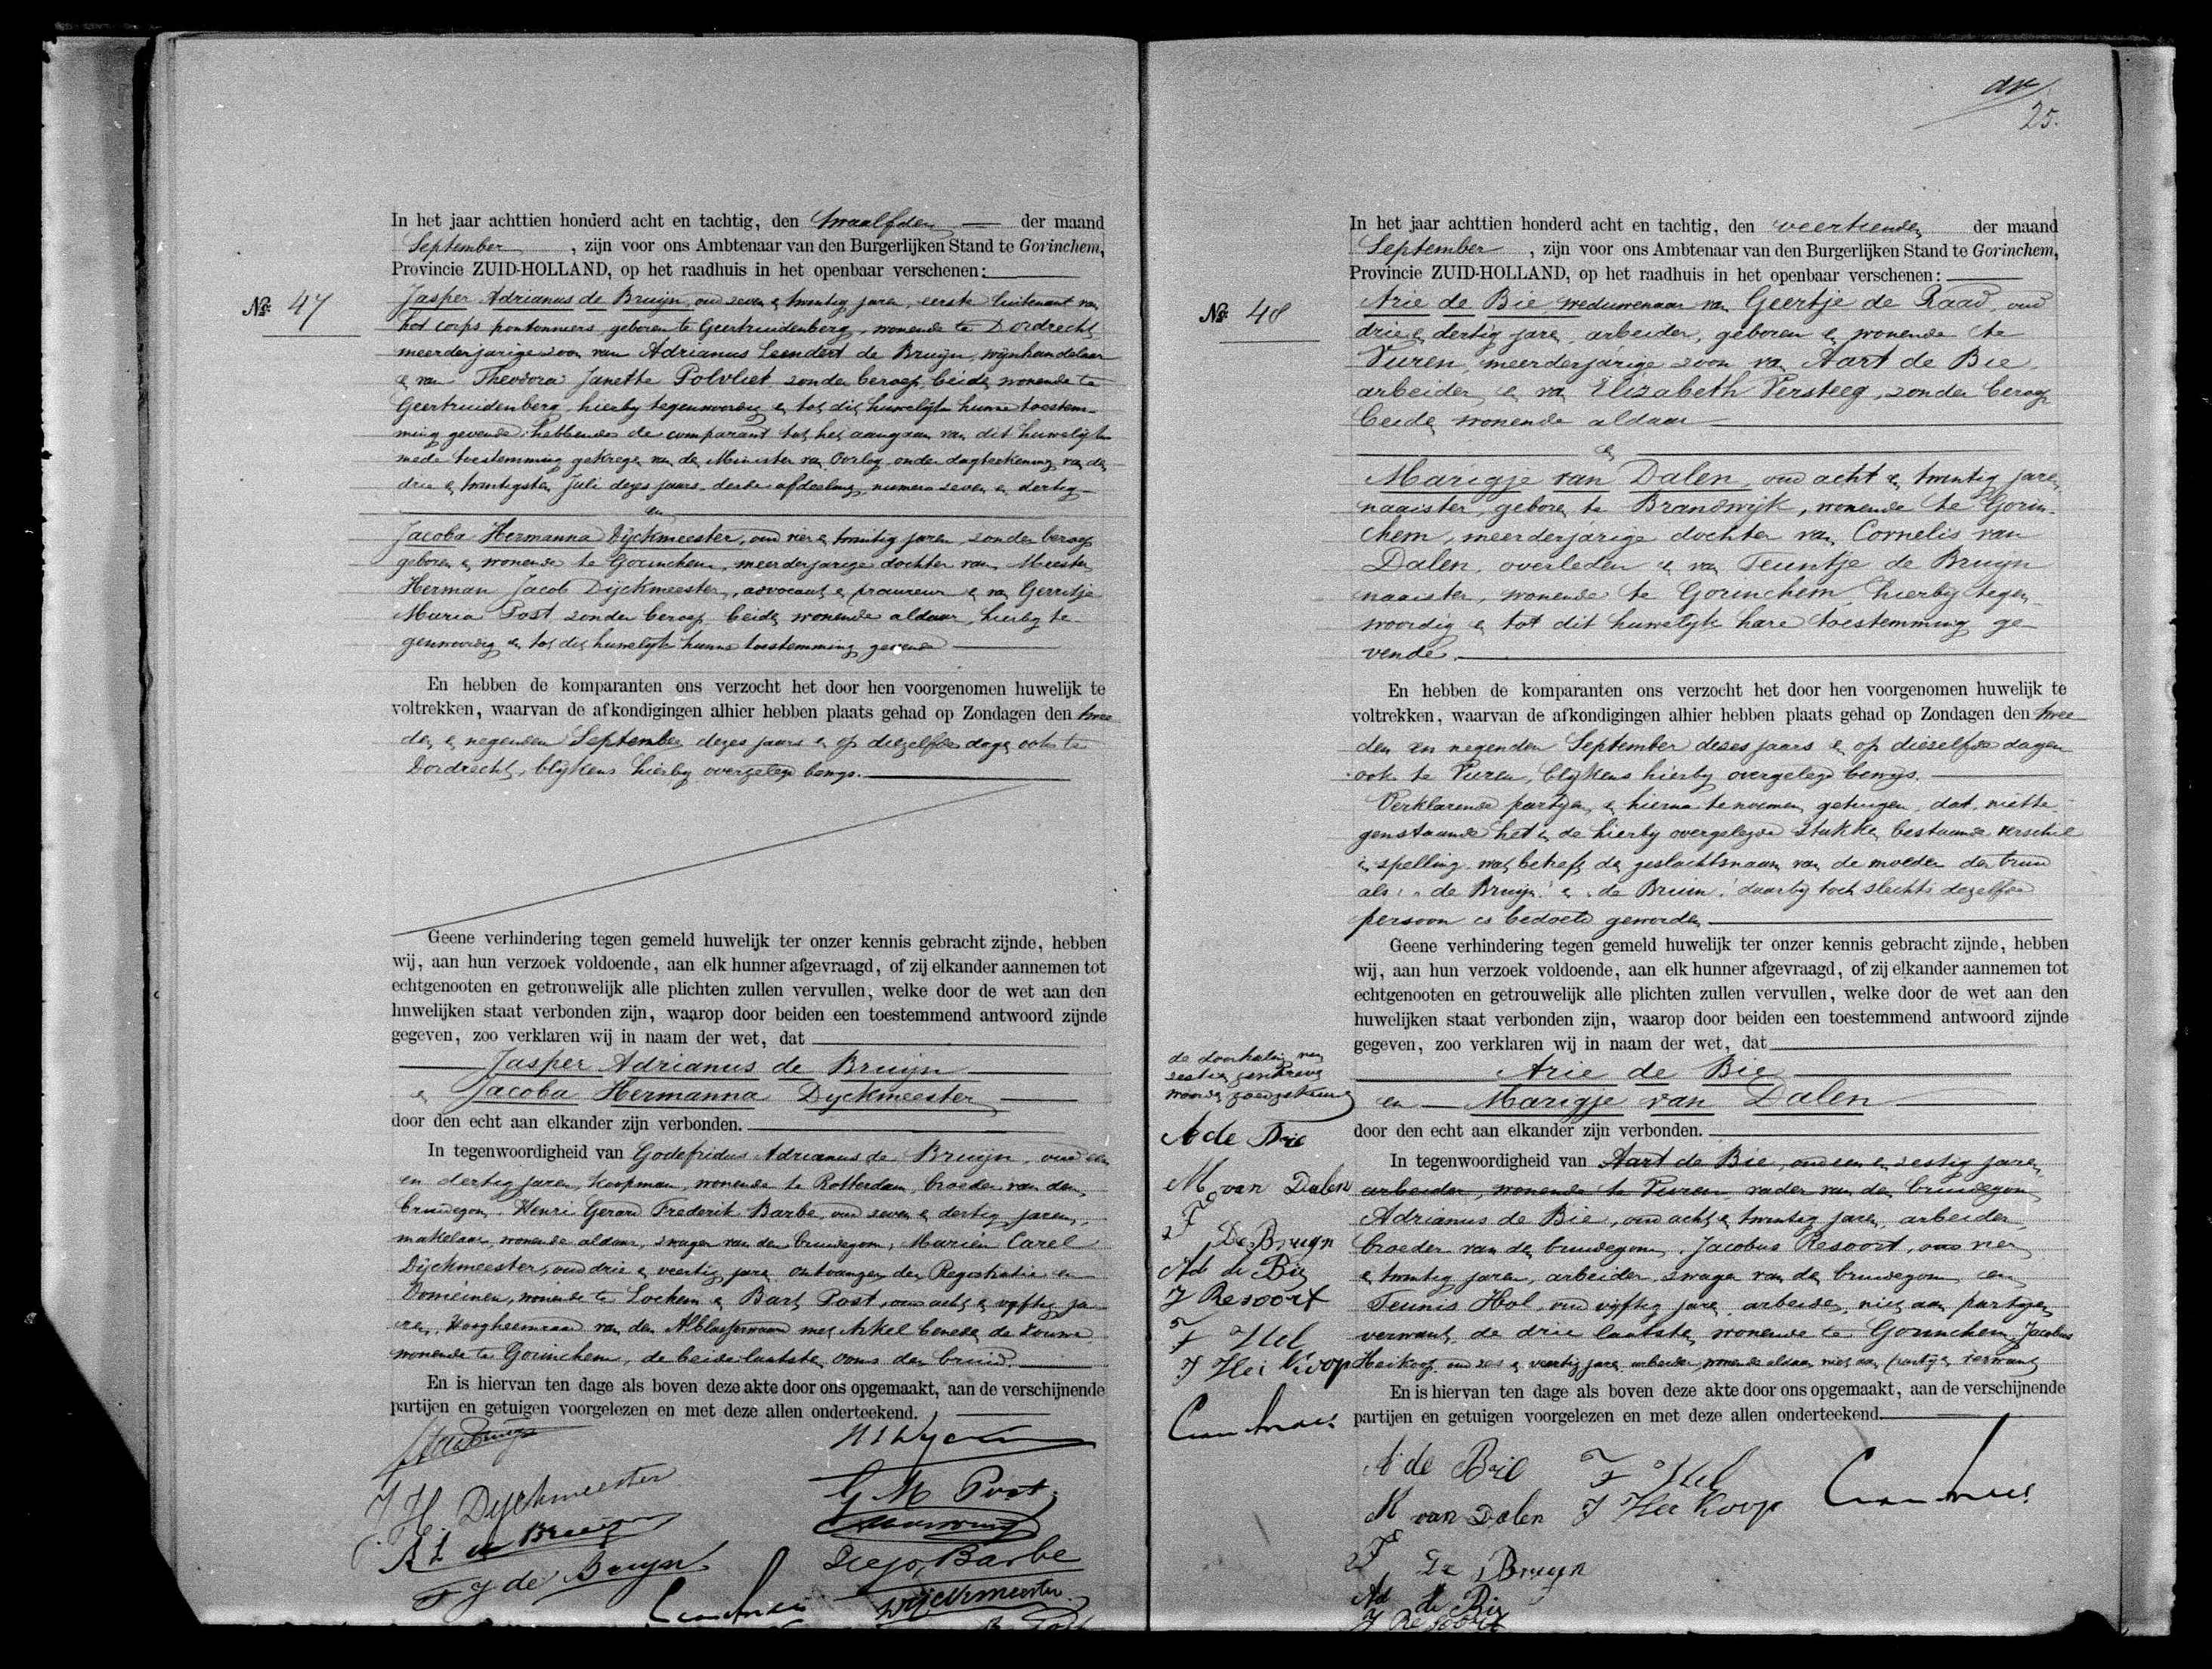 In het jaar achttien honderd acht en tachtig, den twaalfden der maand
September, zijn voor ons Ambtenaar van den Burgerlijken Stand te Gorinchem,
Provincie ZUID-HOLLAND, op het raadhuis in het openbaar verschenen:
No. 47
Jasper Adrianus de Bruijn, oud zeven en twintig jaren, eerste luitenant van
het corps pontonniers, geboren te Geertruidenberg, wonende te Dordrecht,
meerderjarige zoon van Adrianus Leendert de Bruijn, wijnhandelaar
en van Theodora Janette Polvliet, zonder beroep, beide wonende te
Geertruidenberg, hierbij tegenwoordig en tot dit huwelijk hunne toestem-
ming gevende; hebbende de comparant tot het aangaan van dit huwelijk
mede toestemming gekregen van den Minister van Oorlog onder dagteekening van den
drie en twintigsten Juli dezes jaars, derde afdeeling, numero zeven en dertig
en
Jacoba Hermanna Dijckmeester, oud vier en twintig jaren, zonder beroep
geboren en wonende te Gorinchem, meerderjarige dochter van Meester
Herman Jacob Dijckmeester, advocaat en procureur en van Gerritje
Maria Post, zonder beroep, beide wonende aldaar, hierbij te-
genwoordig en tot dit huwelijk hunne toestemming gevende
En hebben de komparanten ons verzocht het door hen voorgenomen huwelijk te
voltrekken, waarvan de afkondigingen alhier hebben plaats gehad op Zondagen den twee-
den en negenden September dezes jaars en op diezelfde dagen ook te
Dordrecht, blijkens hierbij overgelegd bewijs.
Geene verhindering tegen gemeld huwelijk ter onzer kennis gebracht zijnde, hebben
wij, aan hun verzoek voldoende, aan elk hunner afgevraagd, of zij elkander aannemen tot
echtgenooten en getrouwelijk alle plichten zullen vervullen, welke door de wet aan den
huwelijken staat verbonden zijn, waarop door beiden een toestemmend antwoord zijnde
gegeven, zoo verklaren wij in naam der wet, dat
Jasper Adrianus de Bruijn
en Jacoba Hermanna Dijckmeester
door den echt aan elkander zijn verbonden.
In tegenwoordigheid van Godefridus Adrianus de Bruijn, oud een
en dertig jaren, koopman, wonende te Rotterdam, broeder van den
bruidegom, Henri Gerard Frederik Barbe, oud zeven en dertig jaren,
makelaar, wonende aldaar, zwager van den bruidegom, Marien Carel
Dijckmeester, oud drie en veertig jaren, ontvanger der Registratie en
Domeinen, wonende te Lochem en Bart Post, oud acht en vijftig ja-
ren, Hoogheemraad van den Alblasserwaard met Arkel beneden de Zouwe
wonende te Gorinchem, de beide laatsten ooms der bruid.
En is hiervan ten dage als boven deze akte door ons opgemaakt, aan de verschijnende
partijen en getuigen voorgelezen en met deze allen onderteekend.
J H Dijckmeester
G M Post
A L de Bruijn
Barbe
de Bruijn
Dijckmeester
25.
In het jaar achttien honderd acht en tachtig, den veertienden der maand
September, zijn voor ons Ambtenaar van den Burgerlijken Stand te Gorinchem,
Provincie ZUID-HOLLAND, op het raadhuis in het openbaar verschenen:
No. 48
Arie de Bie, weduwenaar van Geertje de Raad, oud
drie en dertig jaren, arbeider, geboren en wonende te
Vuren, meerderjarige zoon van Aart de Bie,
arbeider en van Elizabeth Versteeg, zonder beroep
beide wonende aldaar
en
Marigje van Dalen, oud acht en twintig jaren,
naaister, geboren te Brandwijk, wonende te Gorin-
chem, meerderjarige dochter van Cornelis van
Dalen, overleden en van Teuntje de Bruijn
naaister, wonende te Gorinchem, hierbij tegen-
woordig en tot dit huwelijk hare toestemming ge-
vende.
En hebben de komparanten ons verzocht het door hen voorgenomen huwelijk te
voltrekken, waarvan de afkondigingen alhier hebben plaats gehad op Zondagen den twee-
den en negenden September dezes jaars en op diezelfde dagen
ook te Vuren, blijkens hierbij overgelegd bewijs.
Verklarende partijen en hierna te noemen getuigen, dat niette-
genstaande het in de hierbij overgelegde stukken bestaande verschil
in spelling wat betreft den geslachtsnaam van de moeder der bruid
als: "de Bruijn" en "de Bruin", daarbij toch slechts dezelfde
persoon is bedoeld geworden
Geene verhindering tegen gemeld huwelijk ter onzer kennis gebracht zijnde, hebben
wij, aan hun verzoek voldoende, aan elk hunner afgevraagd, of zij elkander aannemen tot
echtgenooten en getrouwelijk alle plichten zullen vervullen, welke door de wet aan den
huwelijken staat verbonden zijn, waarop door beiden een toestemmend antwoord zijnde
gegeven, zoo verklaren wij in naam der wet, dat
Arie de Bie
en Marigje van Dalen
door den echt aan elkander zijn verbonden.
In tegenwoordigheid van Aart de Bie, oud een en zestig jaren,
arbeider, wonende te Vuren, vader van den bruidegom
Adrianus de Bie, oud acht en twintig jaren, arbeider,
broeder van den bruidegom, Jacobus Resoort, oud vier
en twintig jaren, arbeider, zwager van den bruidegom, en
Teunis Hol, oud vijftig jaren, arbeider, niet aan partijen
verwant, de drie laatsten wonende te Gorinchem, Jacobus
Heikoop, oud zes en veertig jaren, arbeider, wonende aldaar, niet aan partijen verwant
En is hiervan ten dage als boven deze akte door ons opgemaakt, aan de verschijnende
partijen en getuigen voorgelezen en met deze allen onderteekend.
de doorhaling van
zestien geschreven
woorden goedgekeurd
A de Bie
M van Dalen
T De Bruyn
Ad de Bie
J Resoort
T Hol
J Hei Koop
A de Bie
T Hol
M van Dalen
J Hei Koop
T De Bruyn
Ad de Bie
J Resoort